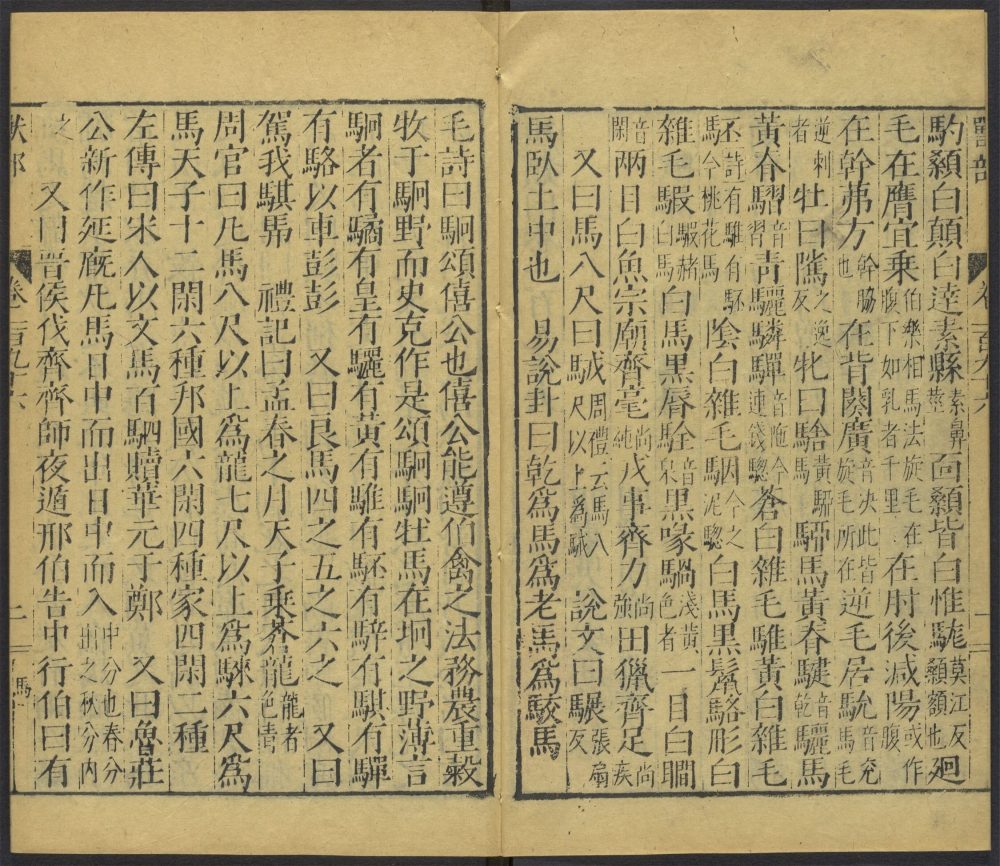 獸部 卷一百九十六 一
馰顙白顛白達素縣素鼻莖面顙皆白惟駹莫江反顙額也廻
毛在膺宜乘伯樂相馬法旋毛在腹下如乳者千里在肘後減陽腹或作
在幹茀方幹脇也在背闋廣音決此皆旋毛所在逆毛居馻音兖馬毛
逆刺者牡曰隲之逸反牝曰騇黃騂馬騂馬黃脊騝音乾驪馬
黃脊騽音習青驪驎驒音陁今連錢驄蒼白雜毛騅黃白雜毛
丕詩有騅有駓馬今桃花馬陰白雜毛駰今之泥驄白馬黑鬛駱彤白
雜毛騢騢赭白馬白馬黑脣駩音泉黑喙騧淺黃色者一目白瞷
音閑兩目白魚宗廟齊毫尚純戎事齊力尚強田獵齊足尚疾
又曰馬八尺曰駥周禮云馬八尺以上爲駥 說文曰驏張扇反
馬臥土中也 易說卦曰乾爲馬爲老馬爲駮馬
毛詩曰駉頌僖公也僖公能遵伯禽之法務農重穀
牧于駉野而史克作是頌駉駉牡馬在坰之野薄言
駉者有驈有皇有驪有黃有騅有駓有騂有騏有驒
有駱以車彭彭 又曰良馬四之五之六之 又曰
駕我騏馵 禮記曰孟春之月天子乘蒼龍龍者色青
周官曰凡馬八尺以上爲龍七尺以上爲騋六尺爲
馬天子十二閑六種邦國六閑四種家四閑二種
左傳曰宋人以文馬百駟贖華元于鄭 又曰魯莊
公新作延廐凡馬日中而出日中而入中分也春分出之秋分內
之 又曰晉侯伐齊齊師夜遁邢伯告中行伯曰有
獸部 卷一百九十六 二 馬